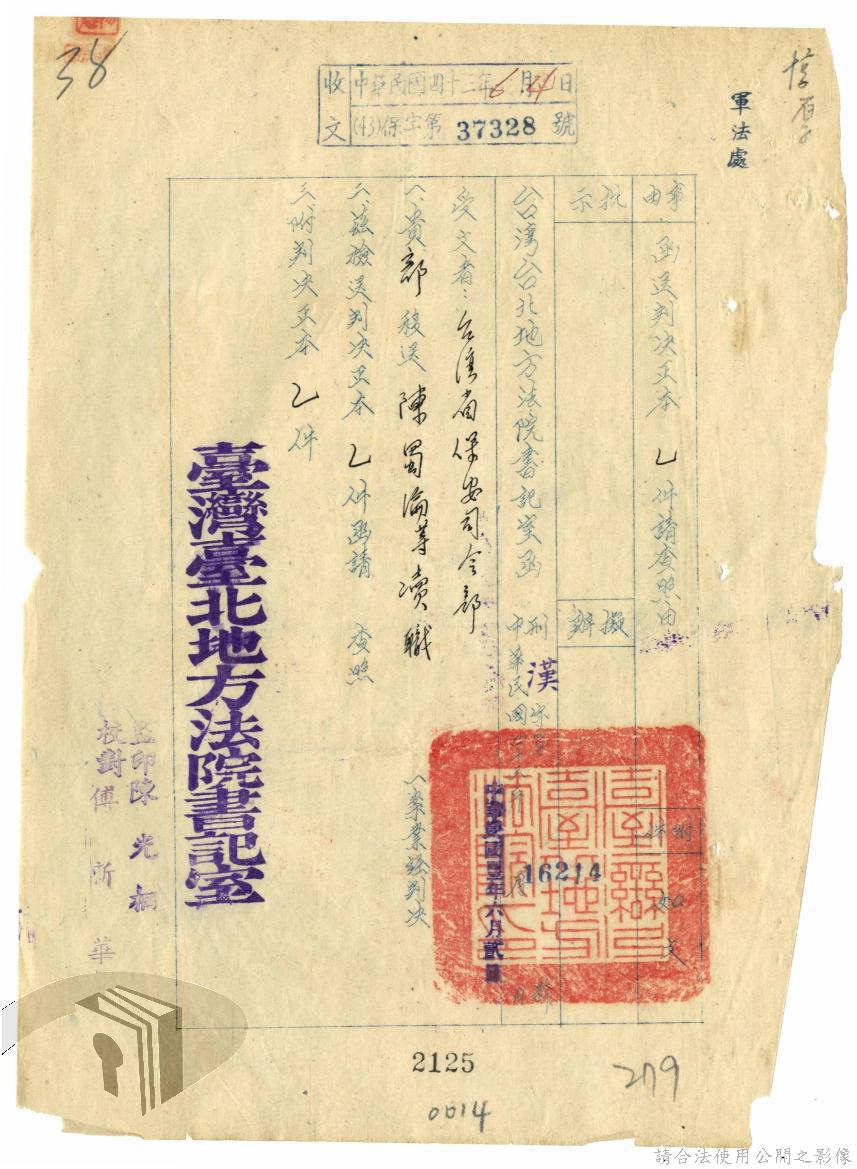 38
收文
中華民國四十三年6月4日
(43)保字第37328號
軍法處
事由
函送判決正本乙件請查照由
批示
擬辦
附件
如文
台湾台北地方法院書記室函
刑漢字第16214號
中華民國四十三年六月貳日
受文者:台湾省保安司令部
一、貴部移送陳蜀淪等瀆職一案業經判決
二、茲檢送判決正本乙件函請查照
三、附判決正本乙件
臺灣臺北地方法院書記室
監印陳光桐
校對傅新華
2125
0014
279
請合法使用公開之影像